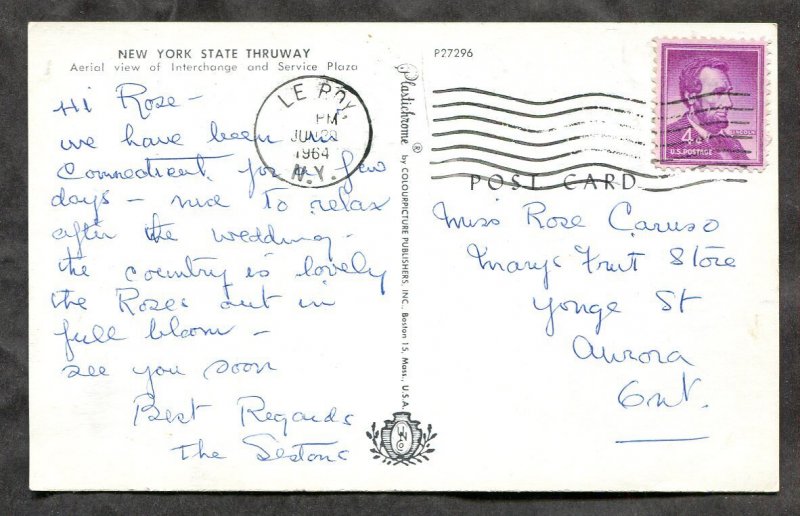 NEW YORK STATE THRUWAY
Aerial view of Interchange and Service Plaza
Hi Rose -
we have been in
Connecticut for a few
days - nice to relax
after the wedding -
the country is lovely
the Roses out in
full bloom -
see you soon
Best Regards
The Sestons
LE ROY
PM
JUN
1964
N.Y.
Plastichrome ® by COLOURPICTURE PUBLISHERS, INC. Boston 15, Mass., U.S.A.
P27296
4¢
LINCOLN
U.S. POSTAGE
POST CARD
Miss Rose Caruso
Marys Fruit Store
Yonge St
Aurora
Ont.